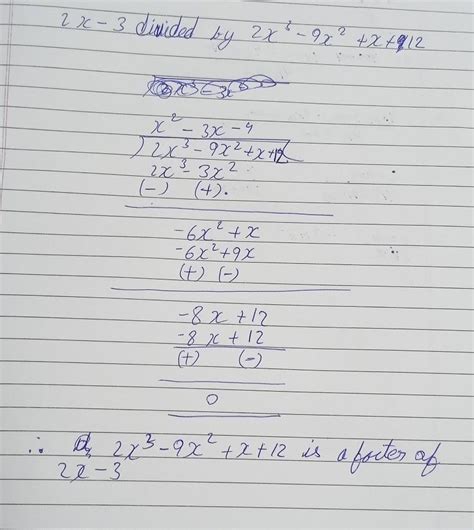 2x - 3 divided by 2x³ - 9x² + x + 12
x² - 3x - 4
) 2x³ - 9x² + x + 12
2x³ - 3x²
(-) (+).
-6x² + x
-6x² + 9x
(+) (-)
-8x + 12
-8x + 12
(+) (-)
0
∴ 2x³ - 9x² + x + 12 is a focter of
2x - 3